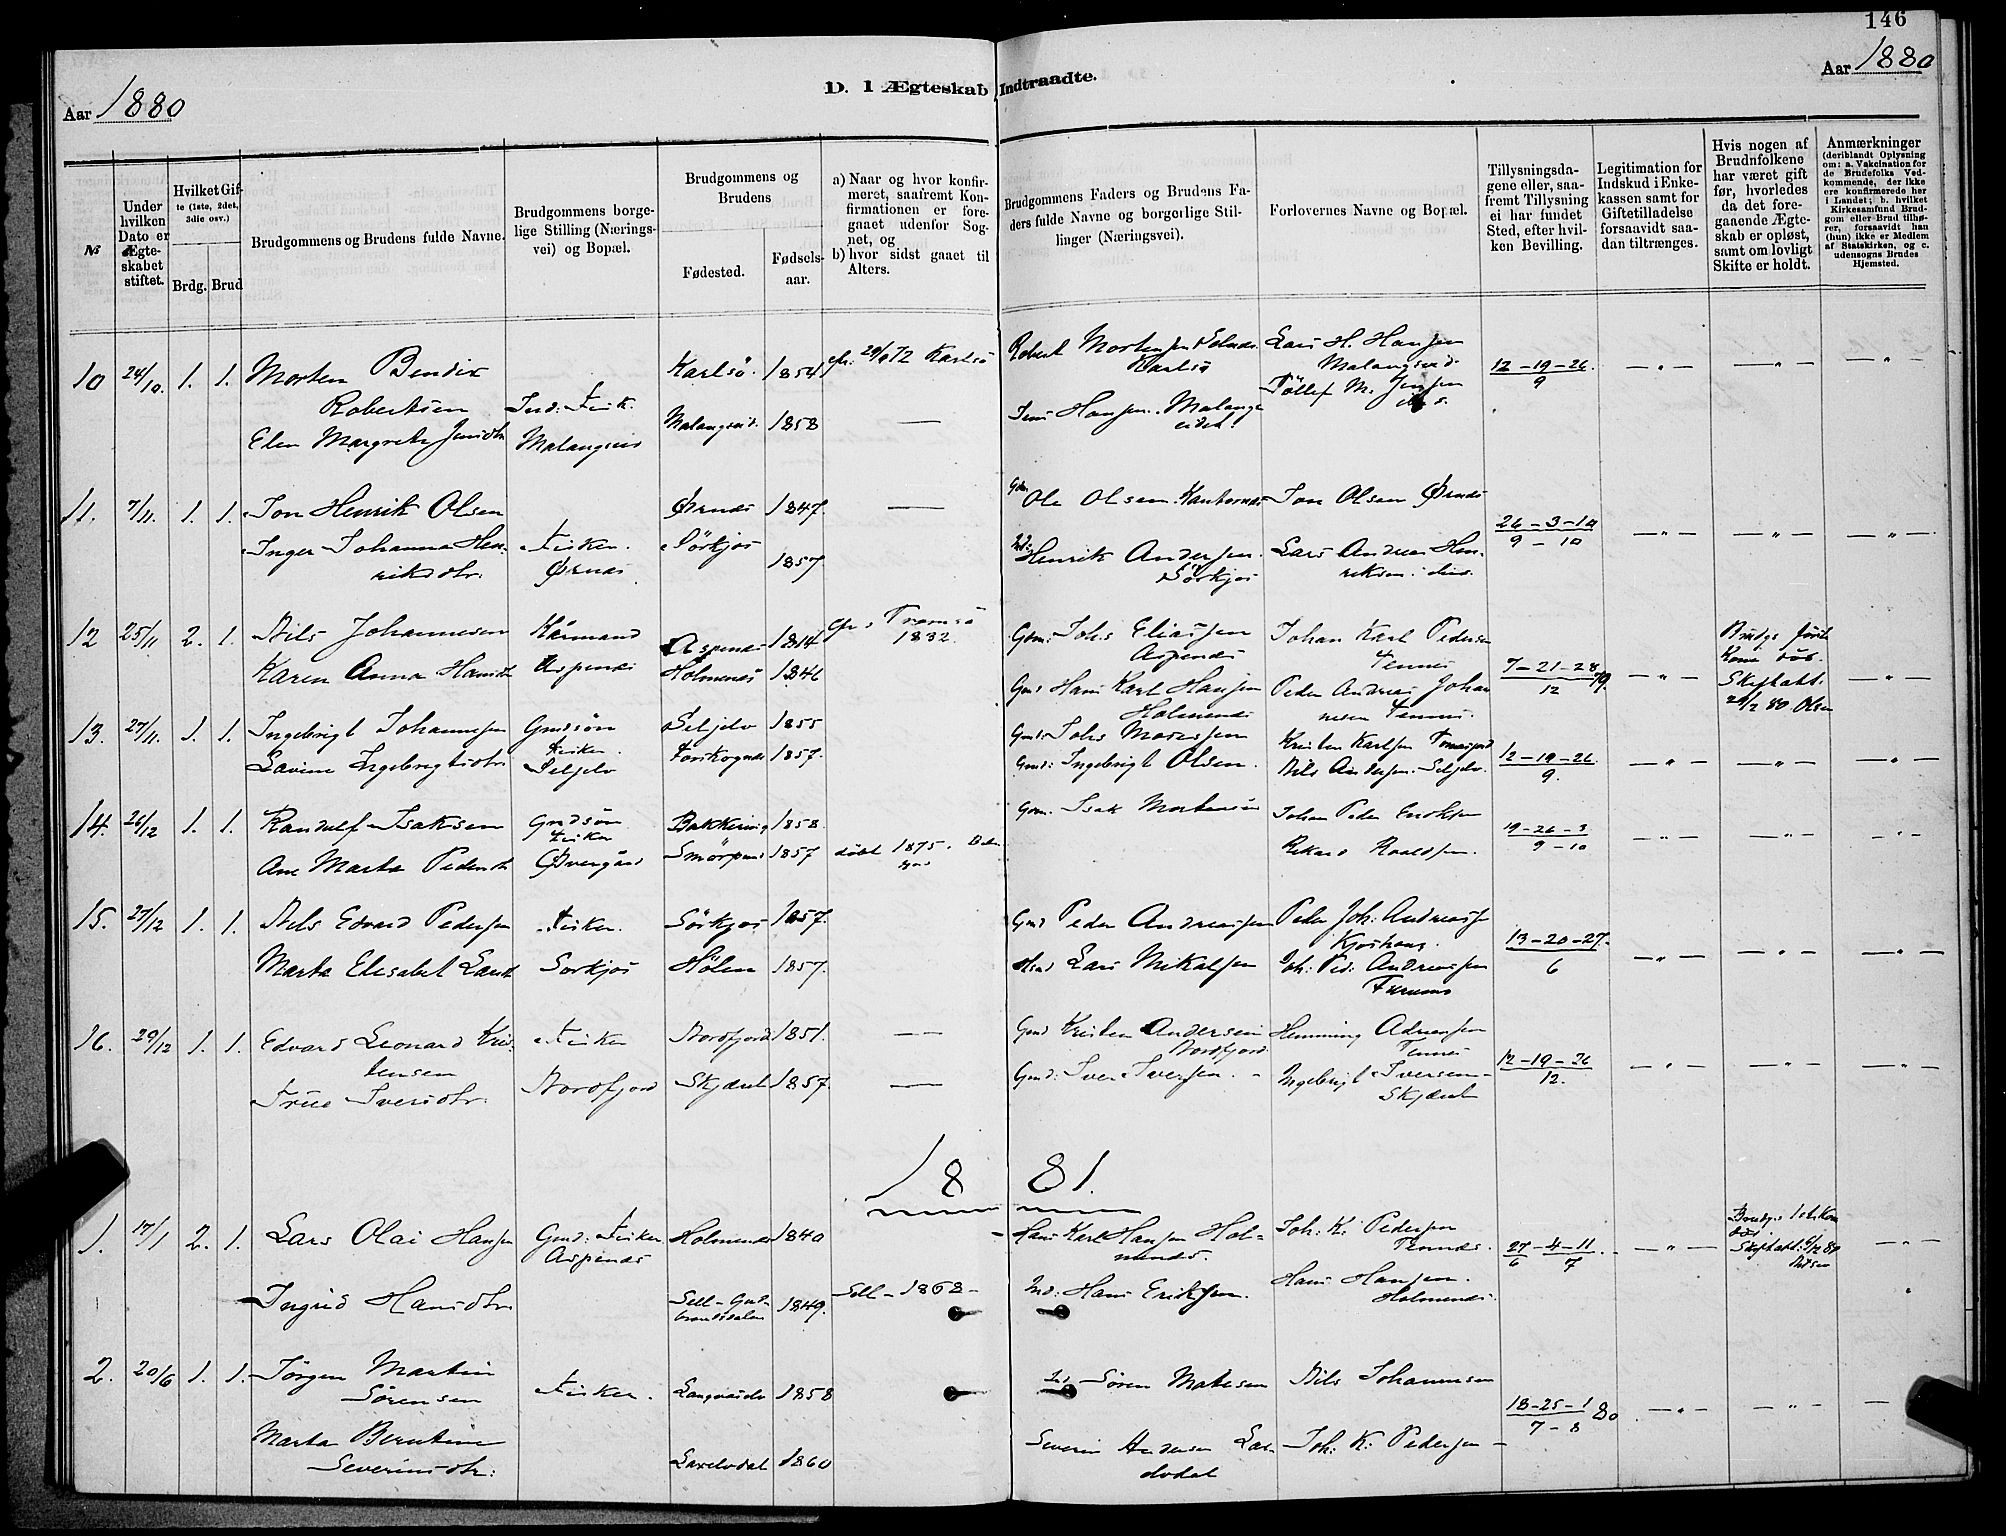 146
Aar 1880
D. I Ægteskab Indtraadte.
Aar 1880
№
Under hvilken Dato er Ægteskabet stiftet.
Hvilket Gifte (1ste, 2det, 3die osv.)
Brdg. Brud
Brudgommens og Brudens fulde Navne.
Brudgommens borgelige Stilling (Næringsvei) og Bopæl.
Brudgommens og Brudens
Fødested.
Fødselsaar.
a) Naar og hvor konfirmeret, saafremt Konfirmationen er foregaaet udenfor Sognet, og
b) hvor sidst gaaet til Alters.
Brudgommens Faders og Brudens Faders fulde Navne og borgerlige Stillinger (Næringsvei).
Forlovernes Navne og Bopæl.
Tillysningsdagene eller, saafremt Tillysning ei har fundet Sted, efter hvilken Bevilling.
Legitimation for Indskud i Enkekassen samt for Giftetilladelse forsaavidt saadan tiltrænges.
Hvis nogen af Brudnfolkene har været gift før, hvorledes da det foregaaende Ægteskab er opløst, samt om lovligt Skifte er holdt.
Anmærkninger
(deriblandt Oplysning om: a. Vakcination for de Brudefolks Vedkommende, der ikke ere konfirmerede her i Landet; b. hvilket Kirkesamfund Brudgom eller Brud tilhører, forsaavidt han (hun) ikke er Medlem af Statskirken, og c. udensogns Brudes Hjemsted.
10 24/10. 1. 1. Morten Bendix Karlsö. 1854 29/9 72 Karlsö Robert Mortensen Karlsö Lars H. Hansen Malangseid 12-19-26. / 9
Robertsen Ind: Fisk. Töllef M. Jensen
Elen Margrethe Jensdtr Malangseid Malangseid. 1858 — Jens Hansen. Malangseidet.
11. 7/11. 1. 1. Jon Henrik Olsen Ørnes 1847. — Gdm. Ole Olsen Kantornes Jon Olsen Ørnes 26-3-10 / 9-10
Inger Johanna Henriksdtr. Fisker. Ørnes Sörkjos 1857 Ind: Henrik Andersen. Sörkjos Lars Andreas Henriksen.
12 25/11 2. 1. Nils Johannesen Kårmand Aspenes 1814 Tromsö 1832. Gdm: Johs Eliassen Aspenes Johan Karl Pedersen Tennes 7-21-28 / 12 79. Brudgs förste Kone död. Skifteatt. 80. Olsen
Karen Anna Hansdtr Aspenes Holmenes 1846 Gmd Hans Karl Hansen Holmenes Peder Andreas Johannesen Tennes.
13. 27/11. 1. 1. Ingebrigt Johannessen Gmdsön Fisker. Seljelv 1855 Gmd: Johs Mosessen Kristen Karlsen 12-19-26. / 9.
Lavine Ingebrigtsdtr Seljelv 1857. Gmd: Ingebrigt Olsen. Nils Andersen. Seljelv.
14. 26/12 1. 1. Randulf Isaksen Gmdsön Fisker Bakkening 1858. Gdm. Isak Mortensen Johan Peder Eriksen 19-26-3 / 9-10
Ane Marta Pedersdtr Øvergård 1857 döbt 1875. Rikard Roaldsen.
15. 27/12 1. 1. Nils Edvard Pedersen Fisker. Sörkjos 1857. Gmd Peder Andreassen Peder Joh: Andreassen 13-20-27. / 6
Marta Elisabet Larsdtr Sörkjos Hölen 1857. Lars Mikalsen Joh: Ped: Andreassen
16. 29/12 1. 1. Edvard Leonard Kristensen Fisker Nordfjord 1851. — Gmd Kristen Andersen Nordfjord. Henning Adriansen Tennes 12-19-26 / 12.
Iversdtr. Nordfjord 1857. — Gmd: Iver Iversen. Ingebrigt Iversen
1881.
1. 17/1 2. 1. Lars Olai Hansen Gmd: Fisker Aspenes Holmenes 1840 Hans Karl Hansen Holmenes. Joh: K: Pedersen Tennes. 27-4-11 / 6 7 Skifteatt:
Ingrid Hansdtr Sell-Gudbrandsdalen 1849. Sell-1868- Ind: Hans Eriksen. Hans Hansen. Holmenes.
2. 20/6 1. 1. Jörgen Martin Sörensen Fisker. 1858 Sören Matesen Nils Johannesen 18-25-1 / 7-8 80
Marta Berntine Severinsdtr: Laxelvdal 1860 Severin Andersen Joh: K: Pedersen